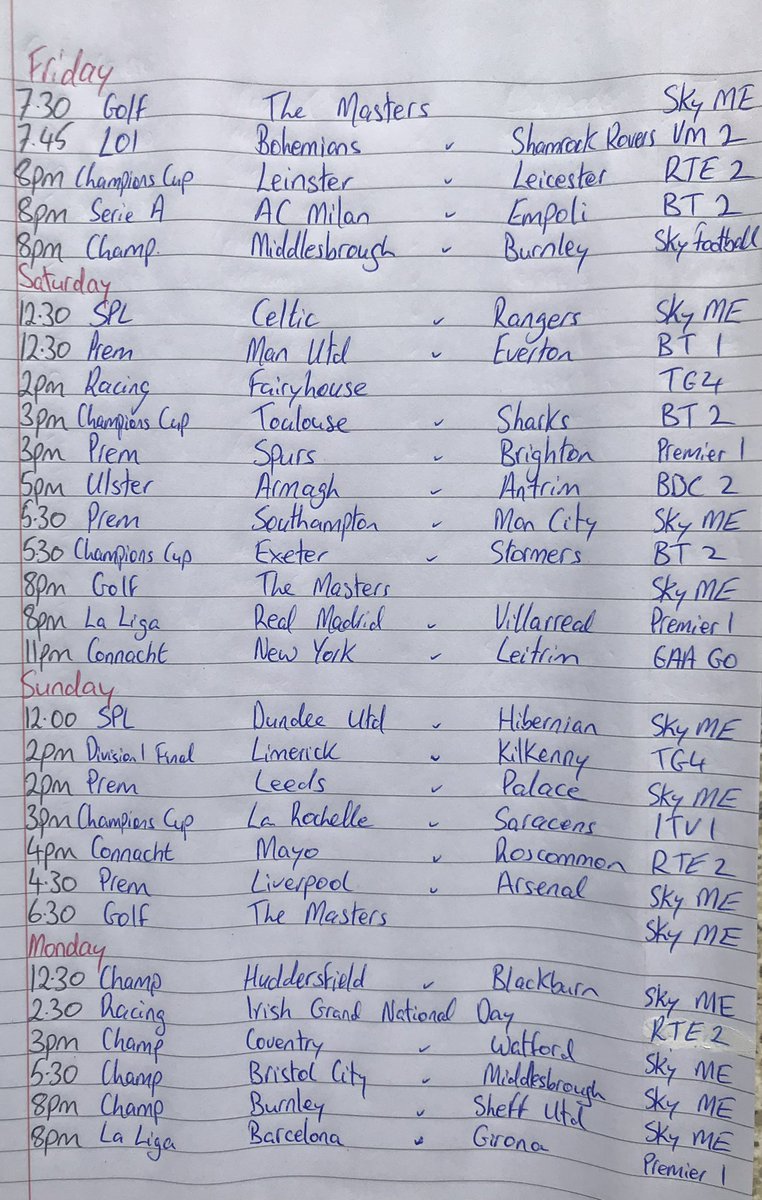 Friday
7.30 Golf The Masters Sky ME
7.45 LOI Bohemians v Shamrock Rovers VM 2
8pm Champions Cup Leinster v Leicester RTE 2
8pm Serie A AC Milan v Empoli BT 2
8pm Champ. Middlesbrough v Burnley Sky football
Saturday
12.30 SPL Celtic v Rangers Sky ME
12.30 Prem Man Utd v Everton BT 1
2pm Racing Fairyhouse TG4
3pm Champions Cup Toulouse v Sharks BT 2
3pm Prem Spurs v Brighton Premier 1
5pm Ulster Armagh v Antrim BBC 2
5.30 Prem Southampton v Man City Sky ME
530 Champions Cup Exeter v Stormers BT 2
8pm Golf The Masters Sky ME
8pm La Liga Real Madrid v Villarreal Premier 1
11pm Connacht New York v Leitrim GAA GO
Sunday
12.00 SPL Dundee Utd v Hibernian Sky ME
2pm Division 1 Final Limerick v Kilkenny TG4
2pm Prem Leeds v Palace Sky ME
3pm Champions Cup La Rochelle v Saracens ITV 1
4pm Connacht Mayo v Roscommon RTE 2
4.30 Prem Liverpool v Arsenal Sky ME
6.30 Golf The Masters Sky ME
Monday
12.30 Champ Huddersfield v Blackburn Sky ME
2.30 Racing Irish Grand National Day RTE 2
3pm Champ Coventry v Watford Sky ME
5.30 Champ Bristol City v Middlesbrough Sky ME
8pm Champ Burnley v Sheff Utd Sky ME
8pm La Liga Barcelona v Girona Premier 1